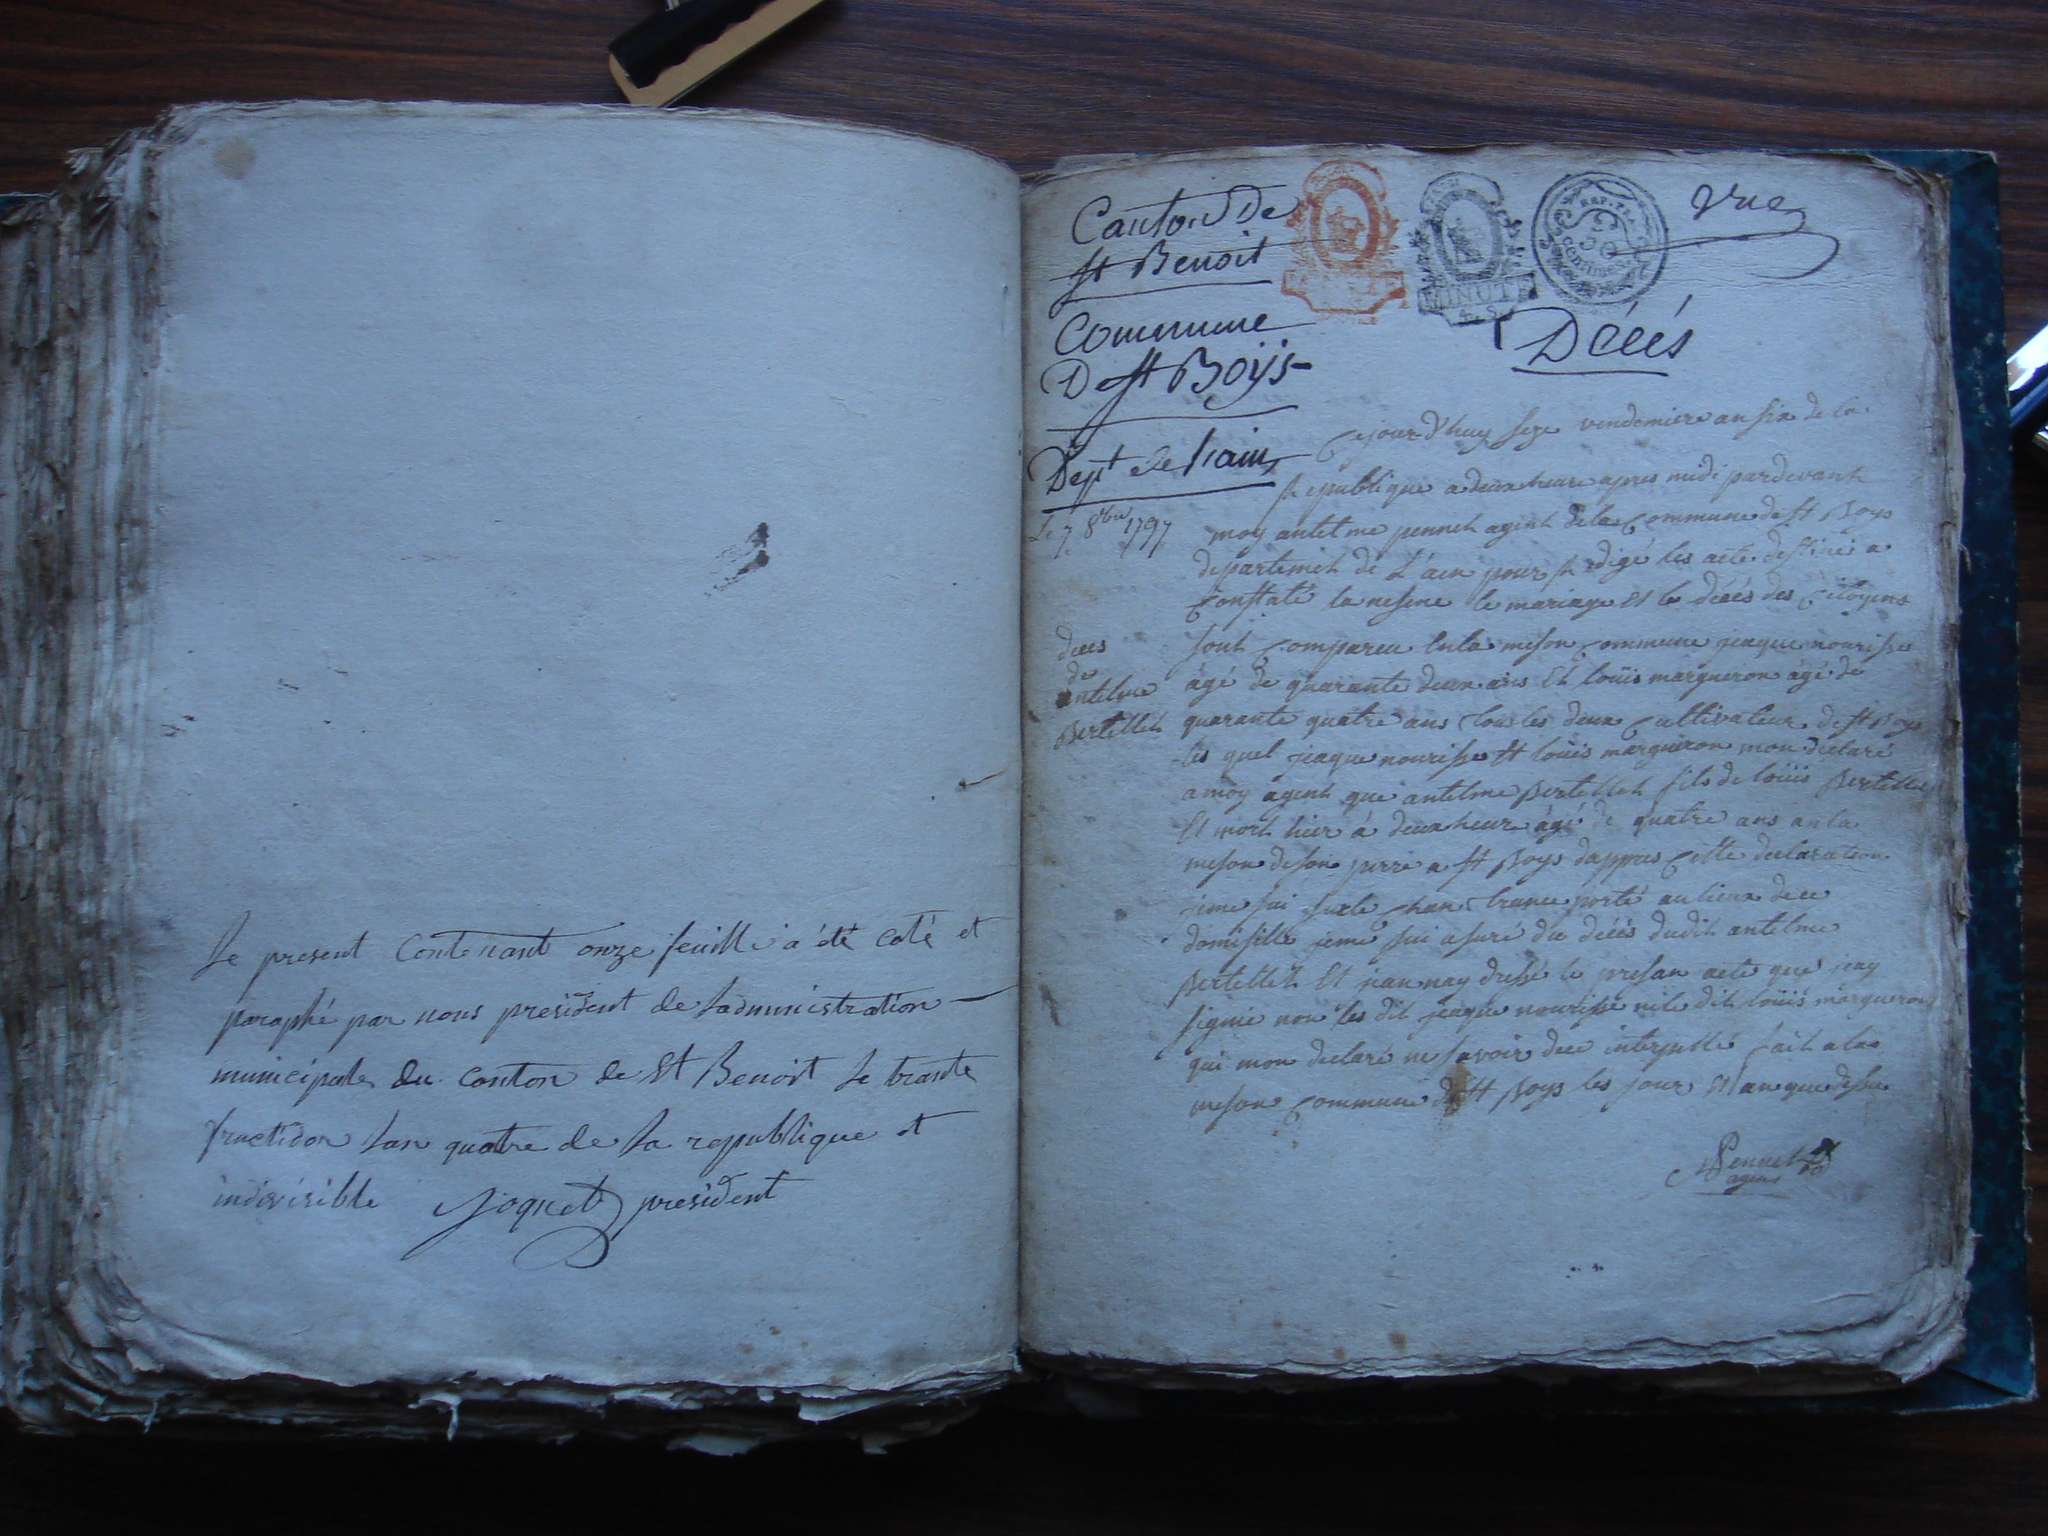 Le present contenant onze feuille a été coté et
paraphé par nous president de Ladministration
municipale du canton de St Benoit le trante
fructidor Lan quatre de la republique et
indivisible Joquet president
Canton de
St Benoit
Commune
De St Boÿs
Dept de Lain
Le 7 8bre 1797
MINUTE
REP. FRA.
50
CENTIMES
vue
Décés
Cejourd'huy seze vendemiere an six de la
Republique a deux heure apres midi pardevant
moy antelme pennet agent de la Commune de St Boys
departement de L'ain pour Redigé les acte destiné a
Constaté la nesence le mariage et le décés des Citoyens
sont Compareu enla meson Commune jeaque nourisse
âgé de quarante deux ans et loüis margueron âgé de
quarante quatre ans tou les deux Cultivateur de St Boys
les quel jeaque nourisse et loüis margueron mon declaré
a moy agent que antelme Bertellet fils de loüis Bertellet
Et mort hier à deux heure âgé de quatre ans an la
meson de son perre a St Boys dappres Cette declaration
jeme sui sur le Chan trance porté au lieux de ce
domisille jeme sui asuré du décés dudit antelme
Bertellet Et jean nay dressé le presan acte que jeay
signié non les dit jeaque nourisse nile dit loüis margueron
qui mon declaré ne savoir dece interpellé fait a la
meson Commune de St Boys les jour et an que desu
décés
de
antelme
Bertellet
Pennet
agent